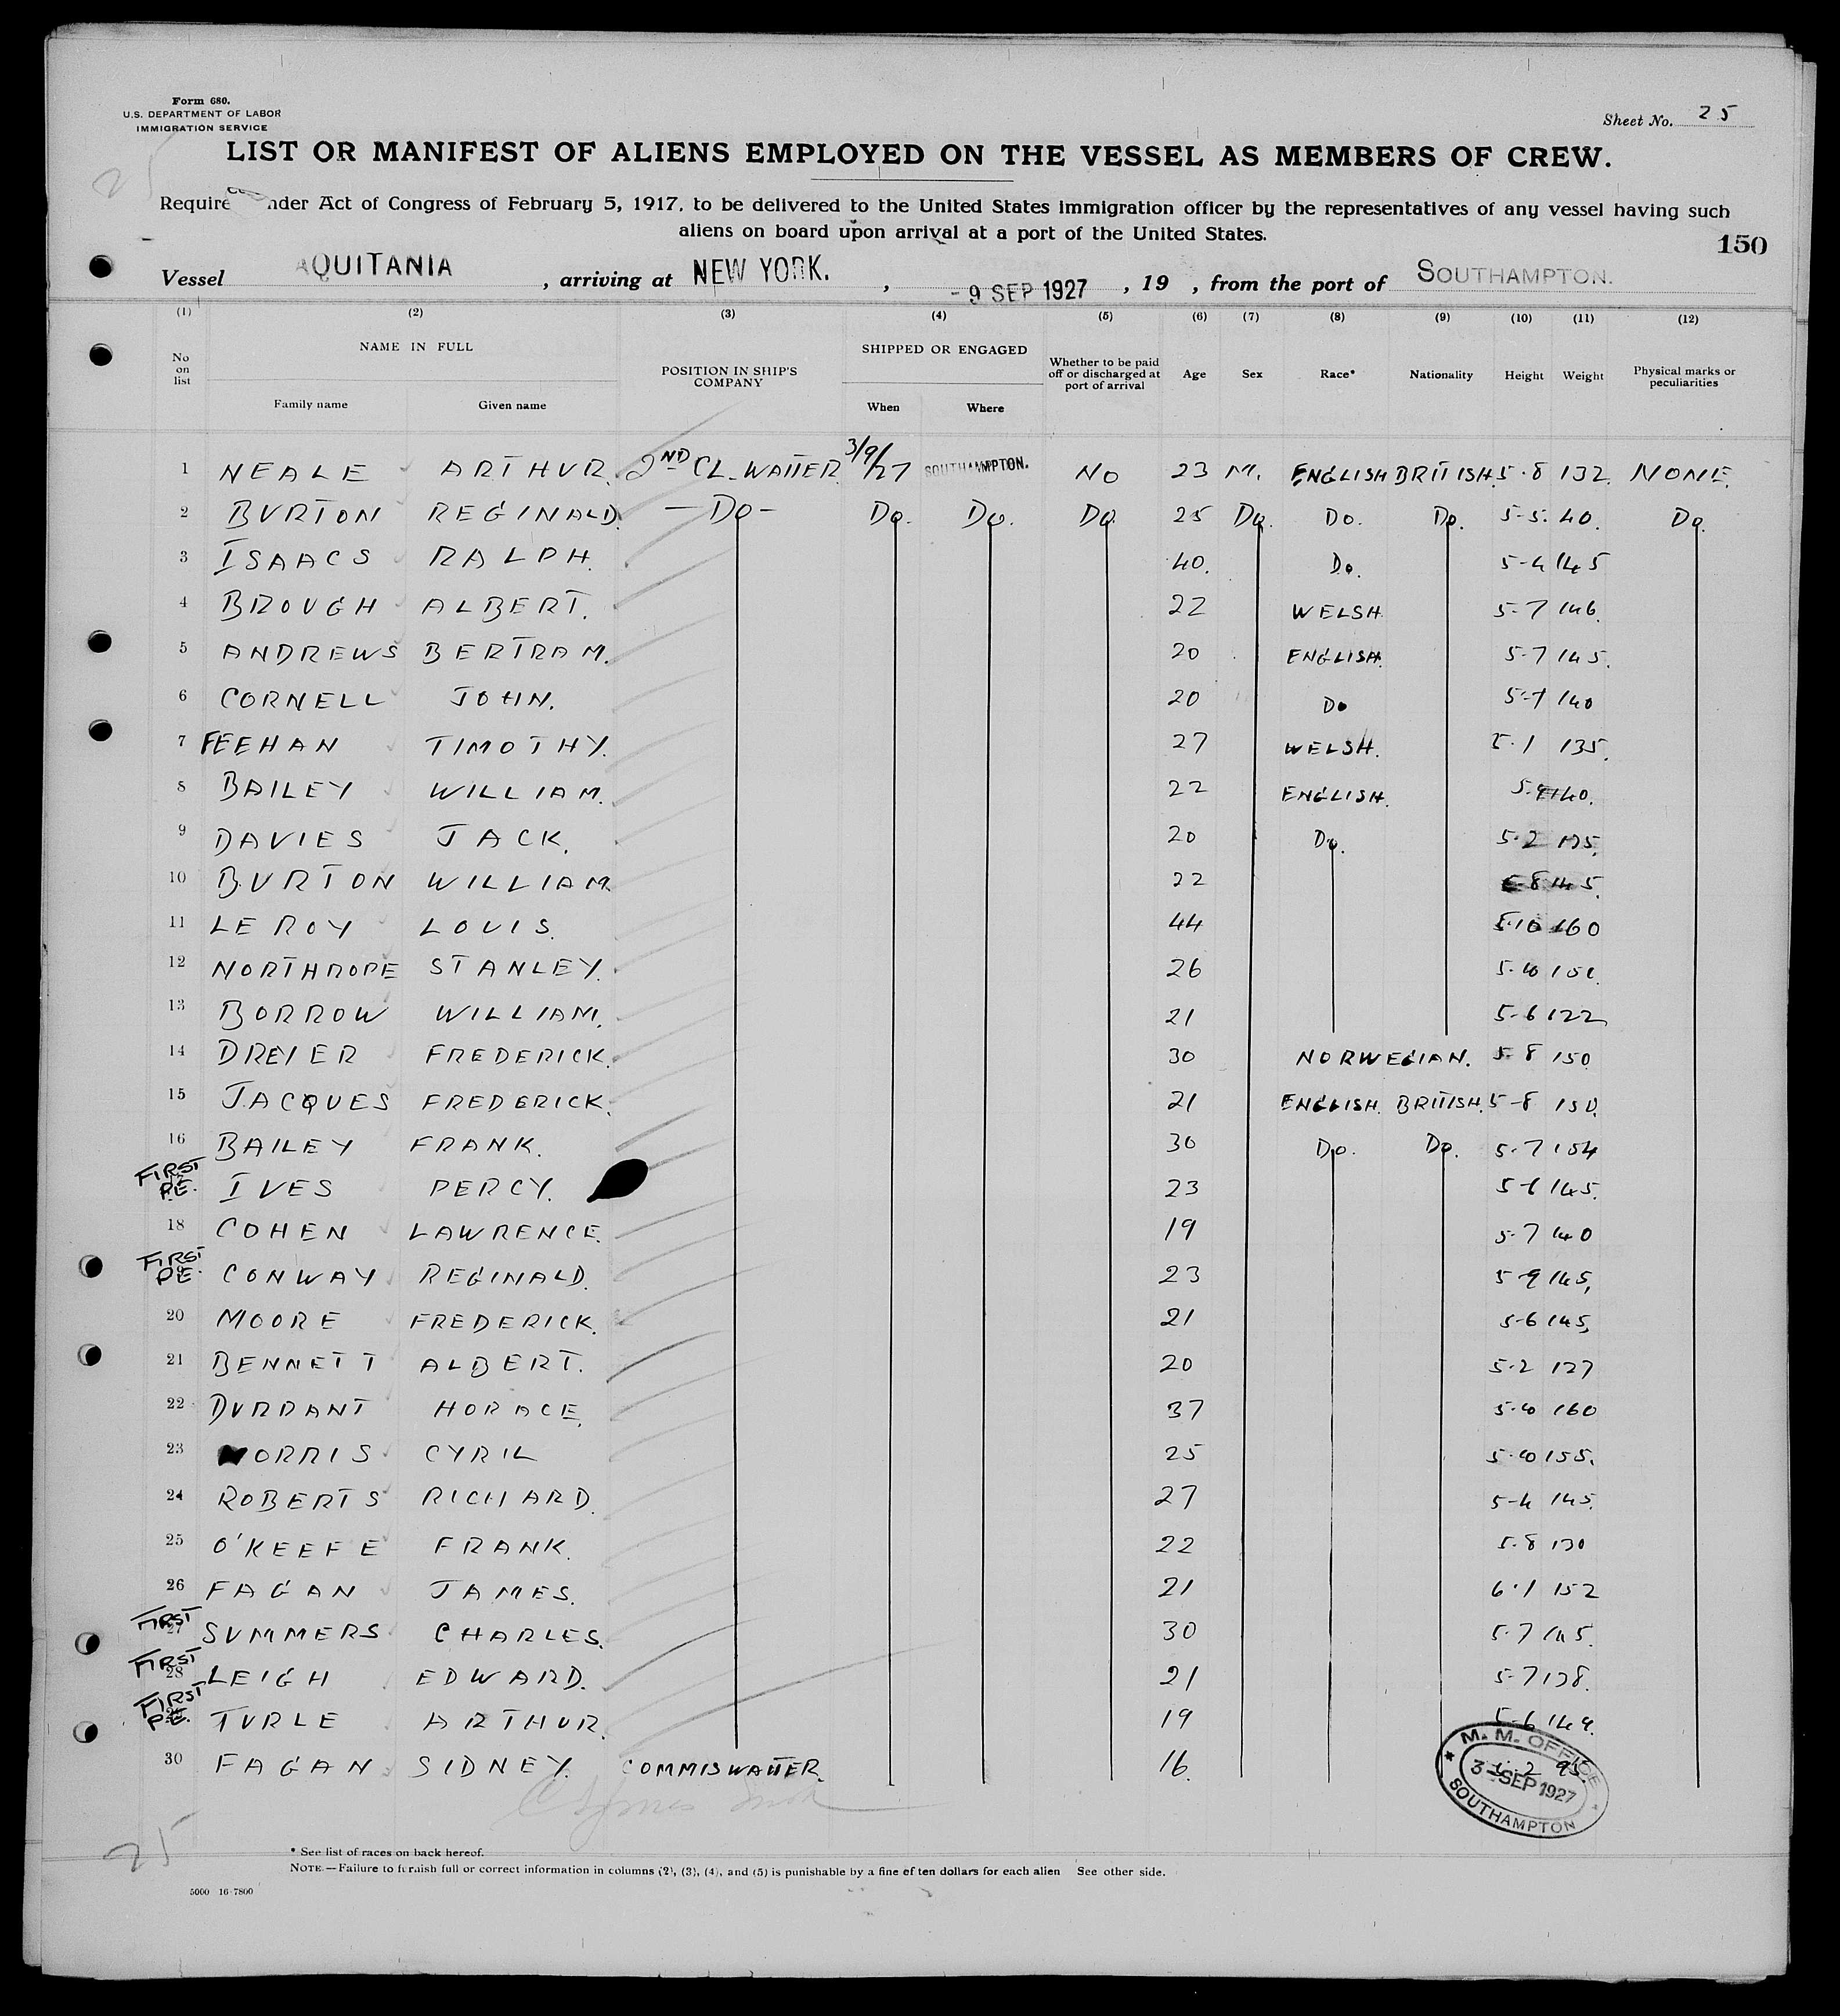 Form 680.
U.S. DEPARTMENT OF LABOR
IMMIGRATION SERVICE
Sheet No. 25
LIST OR MANIFEST OF ALIENS EMPLOYED ON THE VESSEL AS MEMBERS OF CREW.
Require nder Act of Congress of February 5, 1917, to be delivered to the United States immigration officer by the representatives of any vessel having such
aliens on board upon arrival at a port of the United States.
150
Vessel AQUITANIA, arriving at NEW YORK., - 9 SEP 1927, 19 , from the port of SOUTHAMPTON.
(1) (2) (3) (4) (5) (6) (7) (8) (9) (10) (11) (12)
No on list NAME IN FULL Family name Given name POSITION IN SHIP'S COMPANY SHIPPED OR ENGAGED When Where Whether to be paid off or discharged at port of arrival Age Sex Race* Nationality Height Weight Physical marks or peculiarities
1 NEALE ARTHUR. 2ND CL. WAITER 3/9/27 SOUTHAMPTON. NO 23 M. ENGLISH BRITISH. 5-8 132. NONE.
2 BURTON REGINALD. - DO - DO. DO. DO. 25 DO. DO. DO. 5-5. 40. DO.
3 ISAACS RALPH. 40. DO. 5-4 145
4 BROUGH ALBERT. 22 WELSH 5-7 146.
5 ANDREWS BERTRAM. 20 ENGLISH. 5-7 145.
6 CORNELL JOHN. 20 DO 5-7 140
7 FEEHAN TIMOTHY. 27 WELSH. 5-1 135.
8 BAILEY WILLIAM. 22 ENGLISH. 140.
9 DAVIES JACK. 20 DO. 5-2
10 BURTON WILLIAM. 22 5-8 145.
11 LEROY LOUIS. 44 5-10 160
12 NORTHROPE STANLEY. 26 5-10
13 BORROW WILLIAM. 21 5-6 122
14 DREYER FREDERICK. 30 NORWEGIAN. 5-8 150
15 JACQUES FREDERICK. 21 ENGLISH. BRITISH. 5-8 150.
16 BAILEY FRANK. 30 DO. DO. 5-7 154
FIRST P.E. IVES PERCY. 23 145.
18 COHEN LAWRENCE. 19 5-7 140
FIRST P.E. CONWAY REGINALD. 23 5-9 145,
20 MOORE FREDERICK. 21 5-6 145,
21 BENNETT ALBERT. 20 5-2 127
22 DURRANT HORACE. 37 5-10 160
23 MORRIS CYRIL 25 5-10 155.
24 ROBERTS RICHARD. 27 5-4 145.
25 O'KEEFE FRANK. 22 5-8 130
26 FAGAN JAMES. 21 6-1 152
FIRST 27 SUMMERS CHARLES. 30 5-7 145.
FIRST 28 LEIGH EDWARD. 21 5-7 138.
FIRST P.E. TURLE ARTHUR. 19 5-6 149.
30 FAGAN SIDNEY. COMMIS WAITER. 16. 5-2 95.
M. M. OFFICE
3 - SEP 1927
SOUTHAMPTON
25
* See list of races on back hereof.
NOTE.—Failure to furnish full or correct information in columns (2), (3), (4), and (5) is punishable by a fine of ten dollars for each alien See other side.
5000 16-7800